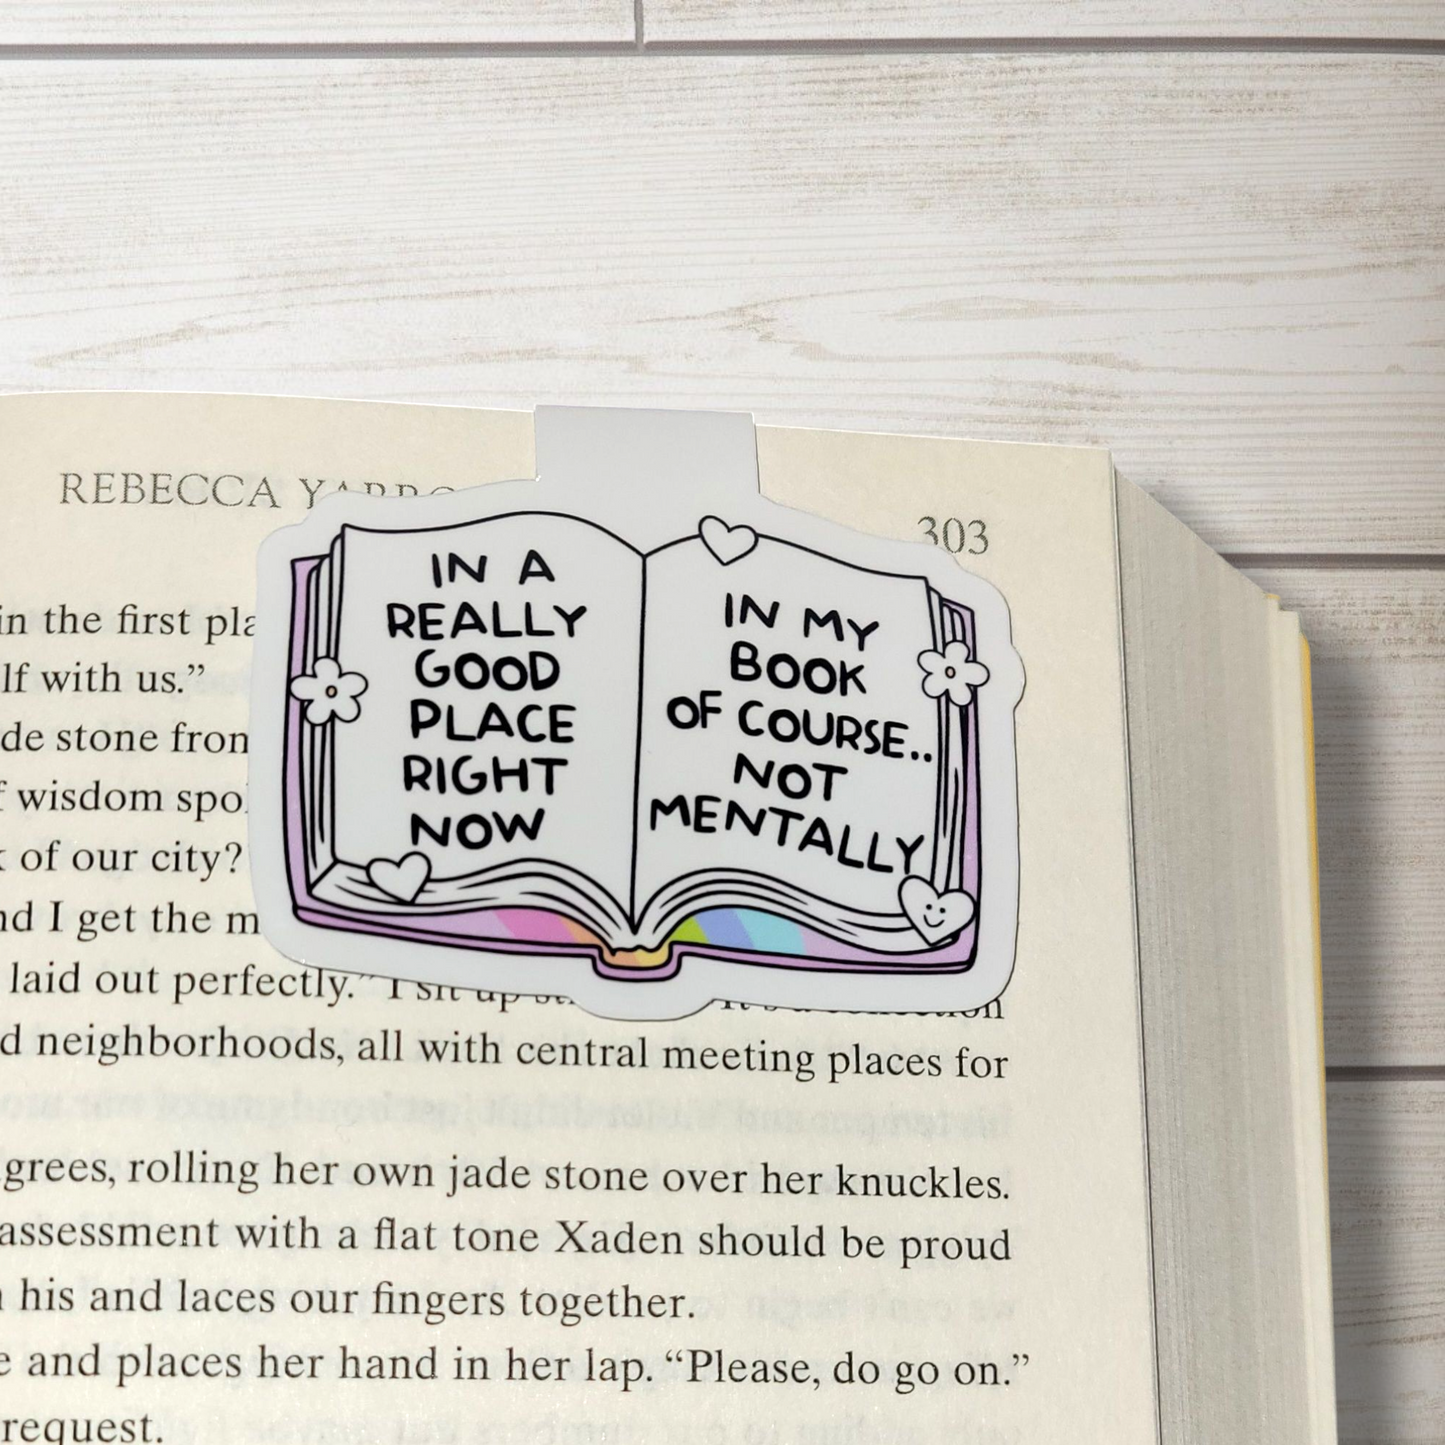 REBECCA
303
IN A
REALLY
GOOD
PLACE
RIGHT
NOW
IN MY
BOOK
OF COURSE..
NOT
MENTALLY
in the first
lf with us.”
de stone
wisdom
of our city?
I get the
laid out perfectly.” I sit up
neighborhoods, all with central meeting places for
rolling her own jade stone over her knuckles.
assessment with a flat tone Xaden should be proud
his and laces our fingers together.
and places her hand in her lap. “Please, do go on.”
request.